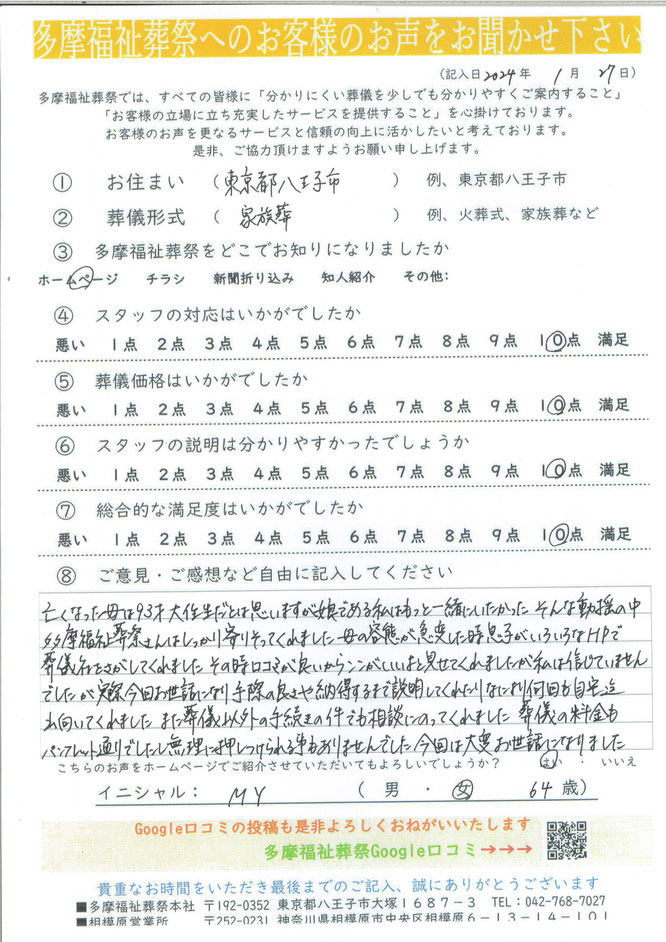 多摩福祉葬祭へのお客様のお声をお聞かせ下さい
(記入日2024年 1月 27日)
多摩福祉葬祭では、すべての皆様に「分かりにくい葬儀を少しでも分かりやすくご案内すること」
「お客様の立場に立ち充実したサービスを提供すること」を心掛けております。
お客様のお声を更なるサービスと信頼の向上に活かしたいと考えております。
是非、ご協力頂けますようお願い申し上げます。
① お住まい (東京都八王子市) 例、東京都八王子市
② 葬儀形式 (家族葬) 例、火葬式、家族葬など
③ 多摩福祉葬祭をどこでお知りになりましたか
ホームページ チラシ 新聞折り込み 知人紹介 その他:
④ スタッフの対応はいかがでしたか
悪い 1点 2点 3点 4点 5点 6点 7点 8点 9点 10点 満足
⑤ 葬儀価格はいかがでしたか
悪い 1点 2点 3点 4点 5点 6点 7点 8点 9点 10点 満足
⑥ スタッフの説明は分かりやすかったでしょうか
悪い 1点 2点 3点 4点 5点 6点 7点 8点 9点 10点 満足
⑦ 総合的な満足度はいかがでしたか
悪い 1点 2点 3点 4点 5点 6点 7点 8点 9点 10点 満足
⑧ ご意見・ご感想など自由に記入してください
亡くなった母は93才大往生だとは思いますが娘である私はもっと一緒にいたかった そんな動揺の中
多摩福祉葬祭さんはしっかり寄りそってくれました 母の容態が急変した時息子がいろいろなHPで
葬儀社をさがしてくれました その時口コミが良いからここがいいよと見せてくれましたが私は信じていません
でしたが実際今回お世話になり手際の良さや納得するまで説明してくれたりなにより何回も自宅迄
出向いてくれました また葬儀以外の手続きの件でも相談にのってくれました 葬儀の料金も
パンフレット通りでしたし無理に押しつけられる事もありませんでした今回は大変お世話になりました
こちらのお声をホームページでご紹介させていただいてもよろしいでしょうか? はい ・ いいえ
イニシャル: MY (男・女 64歳)
Google口コミの投稿も是非よろしくおねがいいたします
多摩福祉葬祭Google口コミ→→→
貴重なお時間をいただき最後までのご記入、誠にありがとうございます
■多摩福祉葬祭本社 〒192-0352 東京都八王子市大塚1687-3 TEL:042-768-7027
■相模原営業所 〒252-0231 神奈川県相模原市中央区相模原6-13-14-101